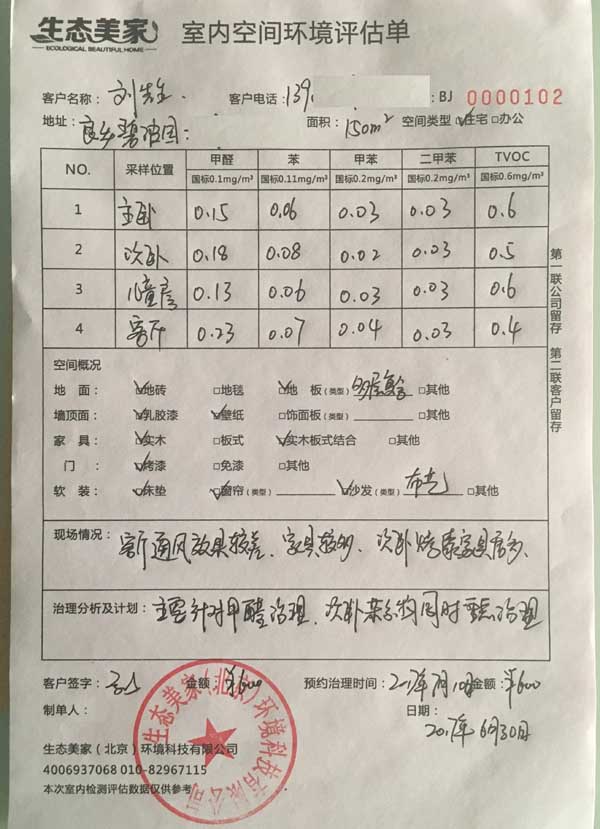 生态美家 室内空间环境评估单
ECOLOGICAL BEAUTIFUL HOME
客户名称: 刘先生 客户电话: 139. : BJ 0000102
地址: 良乡碧波园: 面积: 150m² 空间类型 ☑住宅 □办公
NO. 采样位置 甲醛 苯 甲苯 二甲苯 TVOC
国标0.1mg/m³ 国标0.11mg/m³ 国标0.2mg/m³ 国标0.2mg/m³ 国标0.6mg/m³
1 主卧 0.15 0.06 0.03 0.03 0.6
2 次卧 0.18 0.08 0.02 0.03 0.5
3 儿童房 0.13 0.06 0.03 0.03 0.6
4 客厅 0.23 0.07 0.04 0.03 0.4
第一联公司留存 第二联客户留存
空间概况
地 面: ☑地砖 □地毯 ☑地 板(类型) 多层复合 □其他
墙顶面: ☑乳胶漆 ☑壁纸 □饰面板(类型) □其他
家 具: ☑实木 □板式 ☑实木板式结合 □其他
门: ☑烤漆 □免漆 □其他
软 装: ☑床垫 ☑窗帘(类型) ☑沙发(类型) 布艺 □其他
现场情况: 客厅通风效果较差、家具较多、次卧烤漆家具居多、
治理分析及计划: 主要针对甲醛治理、次卧苯 同时 治理
客户签字: 金额: ¥600 预约治理时间: 2017年7月10日 金额: ¥600
制单人: 日期:
2017年6月30日
生态美家(北京)环境科技有限公司
生态美家(北京)环境科技有限公司
4006937068 010-82967115
本次室内检测评估数据仅供参考